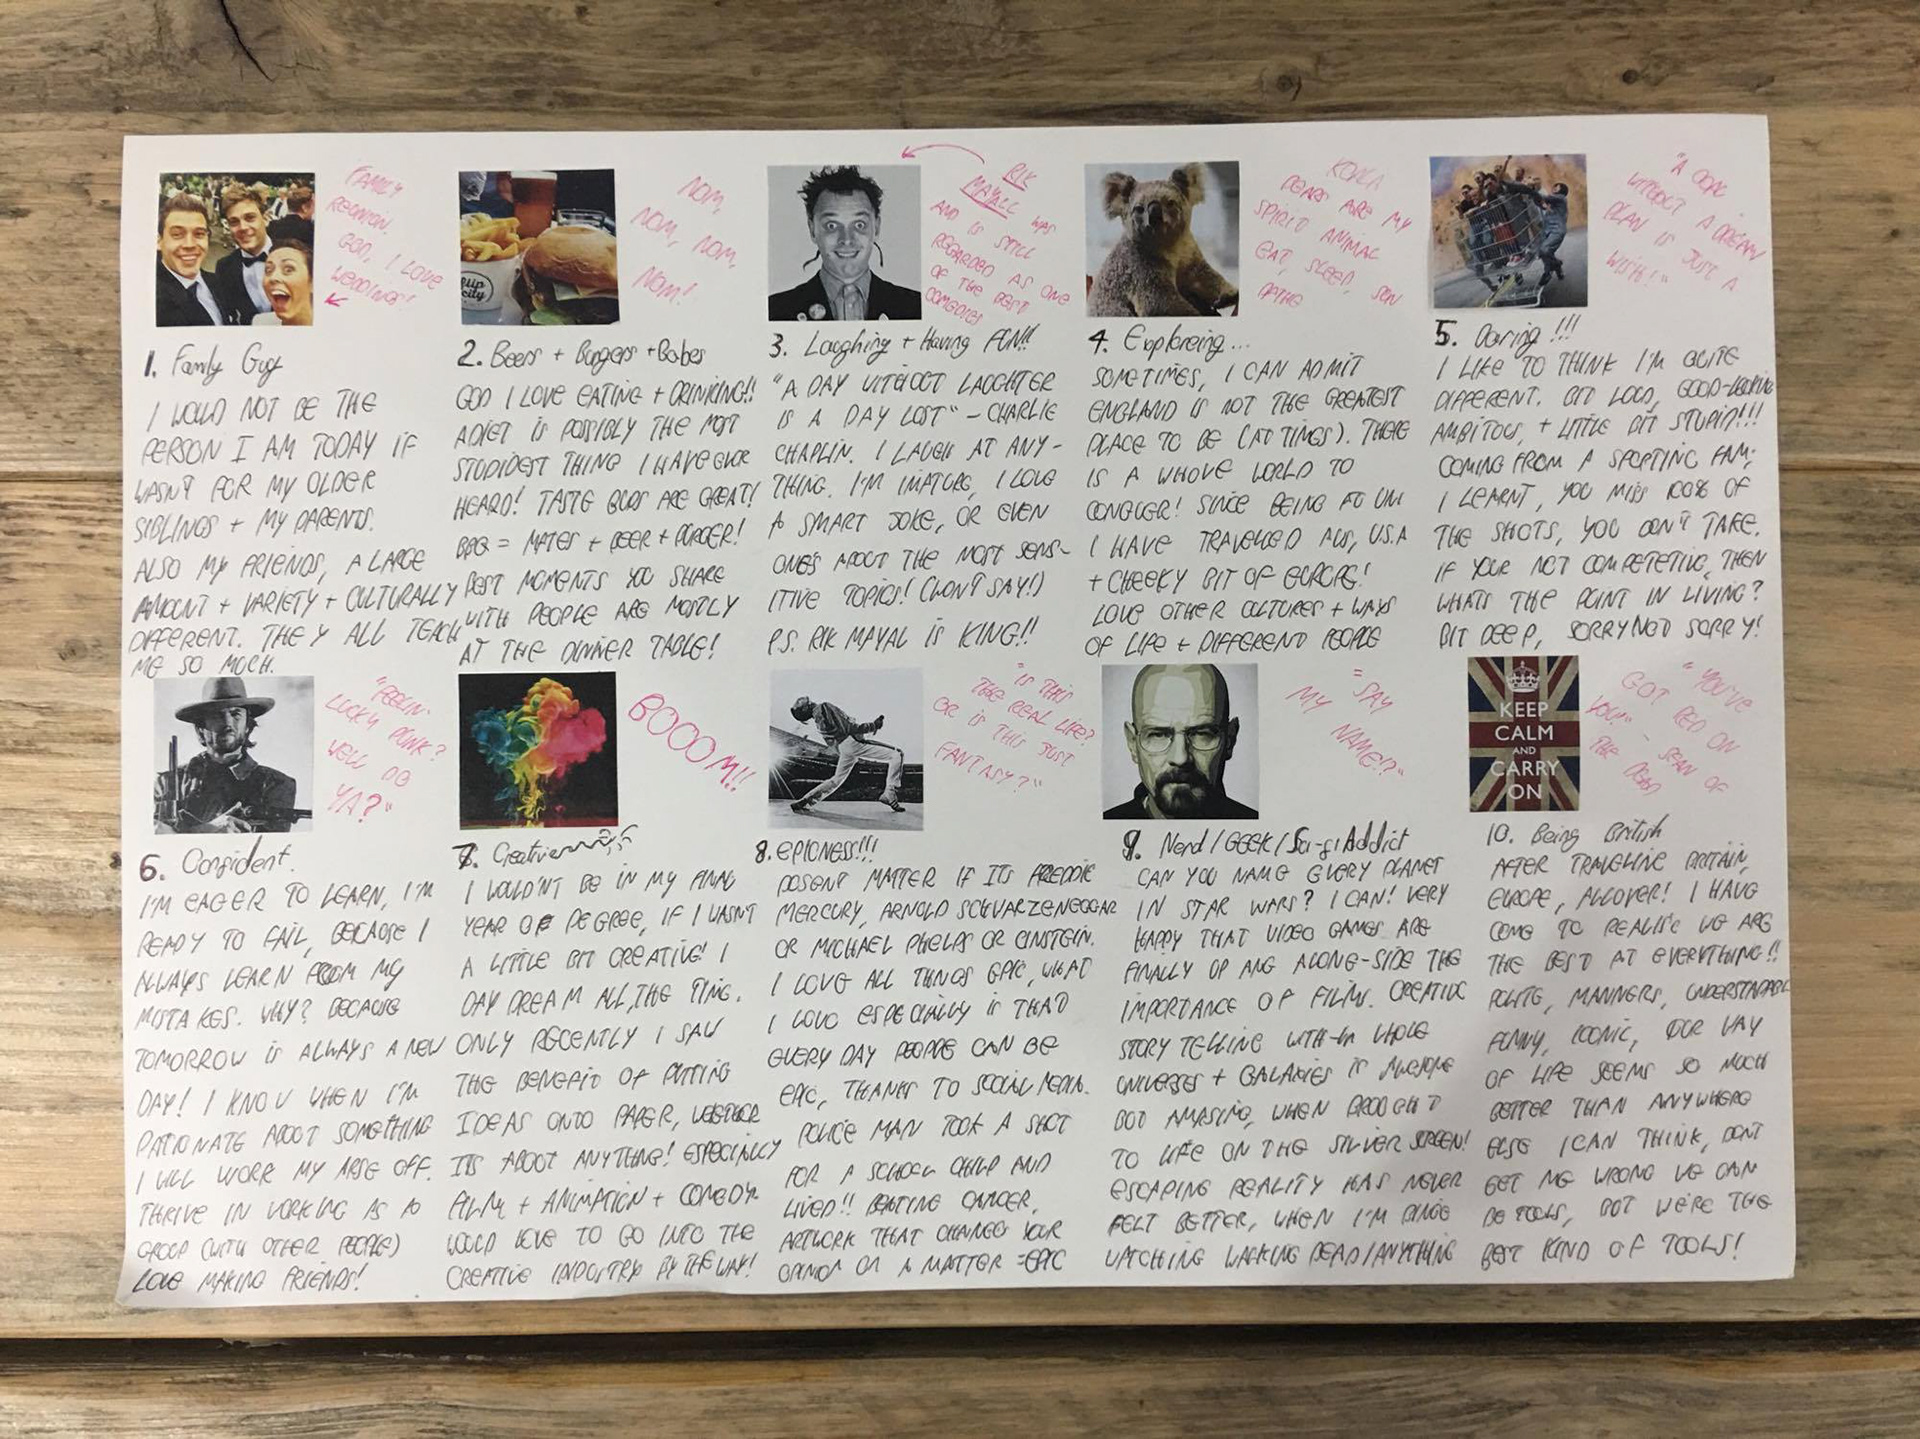 FAMILY
REUNION.
GOD, I LOVE
WEDDINGS!
1. Family Guy
I WOULD NOT BE THE
PERSON I AM TODAY IF
WASN'T FOR MY OLDER
SIBLINGS + MY PARENTS.
ALSO MY FRIENDS, A LARGE
AMOUNT + VARIETY + CULTURALLY
DIFFERENT. THEY ALL TEACH
ME SO MUCH.
NOM,
NOM, NOM,
NOM!
2. Beers + Burgers + Babes
GOD I LOVE EATING + DRINKING!!
A DIET IS POSSIBLY THE MOST
STUDIDEST THING I HAVE EVER
HEARD! TASTE BUDS ARE GREAT!
BBQ = MATES + BEER + BURGER!
BEST MOMENTS YOU SHARE
WITH PEOPLE ARE MOSTLY
AT THE DINNER TABLE!
RIK
MAYALL WAS
AND IS STILL
REGARDED AS ONE
OF THE BEST
3. Laughing + Having FUN!!
"A DAY WITHOUT LAUGHTER
IS A DAY LOST" - CHARLIE
CHAPLIN. I LAUGH AT ANY-
THING. I'M IMATURE, I LOVE
A SMART JOKE, OR EVEN
ONES ABOUT THE MOST SENS-
ITIVE TOPICS! (WON'T SAY!)
P.S. RIK MAYAL IS KING!!
KOALA
BEARS ARE MY
SPIRIT ANIMAL
EAT, SLEEP, SUN
BATHE
4. Exploreing...
SOMETIMES, I CAN ADMIT
ENGLAND IS NOT THE GREATEST
PLACE TO BE (AT TIMES). THERE
IS A WHOLE WORLD TO
CONQUER! SINCE BEING AT UNI
I HAVE TRAVELLED AUS, U.S.A
+ CHEEKY BIT OF EUROPE!
LOVE OTHER CULTURES + WAYS
OF LIFE + DIFFERENT PEOPLE
"A GOAL
WITHOUT A DREAM
PLAN IS JUST A
WISH!"
5. Daring!!!
I LIKE TO THINK I'M QUITE
DIFFERENT. BIT LOUD, GOOD-LOOKING
AMBITOUS, + LITTLE BIT STUPID!!!
COMING FROM A SPORTING FAM;
I LEARNT, YOU MISS 100% OF
THE SHOTS, YOU DON'T TAKE.
IF YOUR NOT COMPETETING, THEN
WHATS THE POINT IN LIVING?
BIT DEEP, SORRY NOT SORRY!
"FEELIN'
LUCKY PUNK?
WELL DO
YA?"
6. Confident.
I'M EAGER TO LEARN, I'M
READY TO FAIL, BECAUSE I
ALWAYS LEARN FROM MY
MISTAKES. WHY? BECAUSE
TOMORROW IS ALWAYS A NEW
DAY! I KNOW WHEN I'M
PATIONATE ABOUT SOMETHING
I WILL WORK MY ARSE OFF.
THRIVE IN WORKING AS A
GROUP (WITH OTHER PEOPLE)
LOVE MAKING FRIENDS!
BOOOM!!
7.
I WOULDN'T BE IN MY FINAL
YEAR OF DEGREE, IF I WASN'T
A LITTLE BIT CREATIVE! I
DAY DREAM ALL THE TIME.
ONLY RECENTLY I SAW
THE BENEFIT OF PUTTING
IDEAS ONTO PAPER, WETHER
ITS ABOUT ANYTHING! ESPECIALLY
FILM + ANIMATION + COMEDY.
WOULD LOVE TO GO INTO THE
CREATIVE INDUSTRY BY THE WAY!
"IS THIS
THE REAL LIFE?
OR IS THIS JUST
FANTASY?"
8. EPICNESS!!!
DOSENT MATTER IF ITS FREDDIE
MERCURY, ARNOLD SCHWARZENEGGAR
OR MICHAEL PHELPS OR EINSTEIN.
I LOVE ALL THINGS EPIC, WHAT
I LOVE ESPECIALLY IS THAT
EVERY DAY PEOPLE CAN BE
EPIC, THANKS TO SOCIAL MEDIA.
POLICE MAN TOOK A SHOT
FOR A SCHOOL CHILD AND
LIVED!! BEATING CANCER,
ARTWORK THAT CHANGES YOUR
OPINION ON A MATTER = EPIC
"SAY
MY NAME!?"
9. Nerd/GEEK/Sci-fi Addict
CAN YOU NAME EVERY PLANET
IN STAR WARS? I CAN! VERY
HAPPY THAT VIDEO GAMES ARE
FINALLY UP ANG ALONG-SIDE THE
IMPORTANCE OF FILMS. CREATIVE
STORY TELLING WITH-IN WHOLE
UNIVERSES + GALAXIES IS AWESOME
BUT AMASING, WHEN BROUGHT
TO LIFE ON THE SILVER SCREEN!
ESCAPING REALITY HAS NEVER
FELT BETTER, WHEN I'M BINGE
WATCHING WALKING DEAD/ANYTHING
KEEP
CALM
AND
CARRY
ON
"YOU'VE
GOT RED ON
YOU" - SEAN OF
THE DEAD
10. Being British
AFTER TRAVELING BRITAIN,
EUROPE, ALLOVER! I HAVE
COME TO REALISE WE ARE
THE BEST AT EVERYTHING!!
POLITE, MANNERS, UNDERSTANDABLE
FUNNY, ICONIC, OUR WAY
OF LIFE SEEMS SO MUCH
BETTER THAN ANYWHERE
ELSE I CAN THINK, DONT
GET ME WRONG WE CAN
BE TOOLS, BUT WE'RE THE
BEST KIND OF TOOLS!